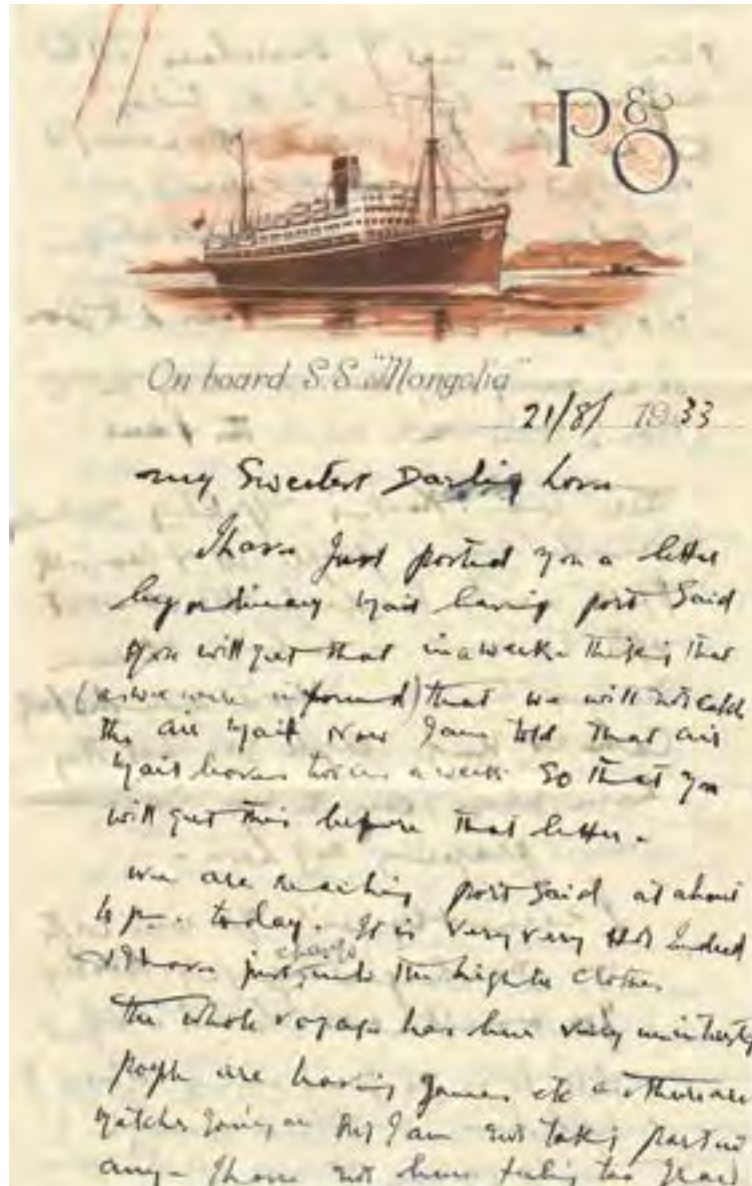 P&O
On board S.S. "Mongolia"
21/8/ 1933
My Sweetest Darling Love
I have just posted you a letter
by ordinary mail leaving port Said
you will get that in a week thinking that
(as we were informed) that we will not catch
the air mail Now I am told that air
mail leaves twice a week So that you
will get this before that letter.
we are reaching port Said at about
4 p.m. today. It is very very Hot Indeed
& I have just changed into the lighter clothes
The whole voyage has been very
people are having games etc & there are
matches going on But I am not taking part in
any - I have not been feeling too